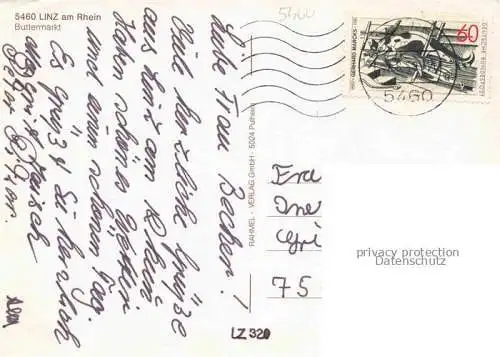 5460 LINZ am Rhein
Buttermarkt
5400
Liebe Frau Becker!
Viel herzliche Grüße
aus Linz am Rhein
haben schönes Wetter
und einen schönen Tag.
Es grüßt Sie herzlich
RAHMEL - VERLAG GmbH - 5024 Pulheim
GERHARD MARCKS
60
DEUTSCHE BUNDESPOST
5460
Fra
75
privacy protection
Datenschutz
LZ 320